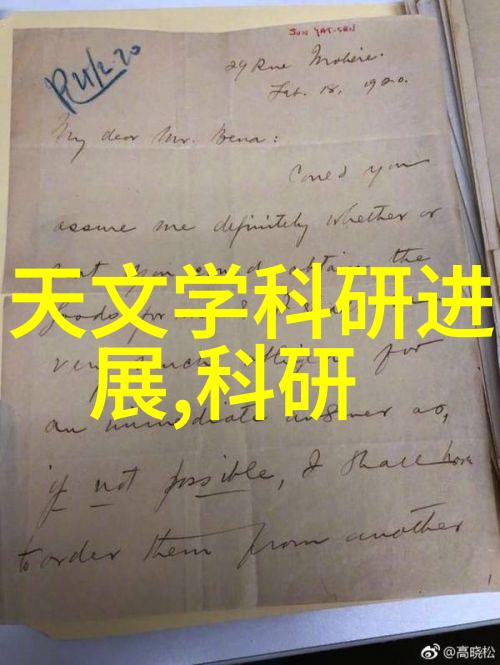 SUN YAT-SEN
R 21/2.20
29 Rue Molière.
Feb. 18, 1920.
My dear Mr. Bena:
Could you
assure me definitely whether or
not you could obtain the
goods for me
very much obliged for
an immediate answer as,
if not possible, I shall have
to order them from another
天文学科研进
展,科研
@高晓松